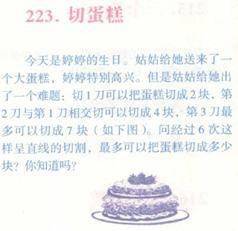 223. 切蛋糕
今天是婷婷的生日。姑姑给她送来了一
个大蛋糕，婷婷特别高兴。但是姑姑给她出
了一个难题：切1刀可以把蛋糕切成2块，第
2刀与第1刀相交切可以切成4块，第3刀最
多可以切成7块（如下图）。问经过6次这
样呈直线的切割，最多可以把蛋糕切成多少
块？你知道吗？